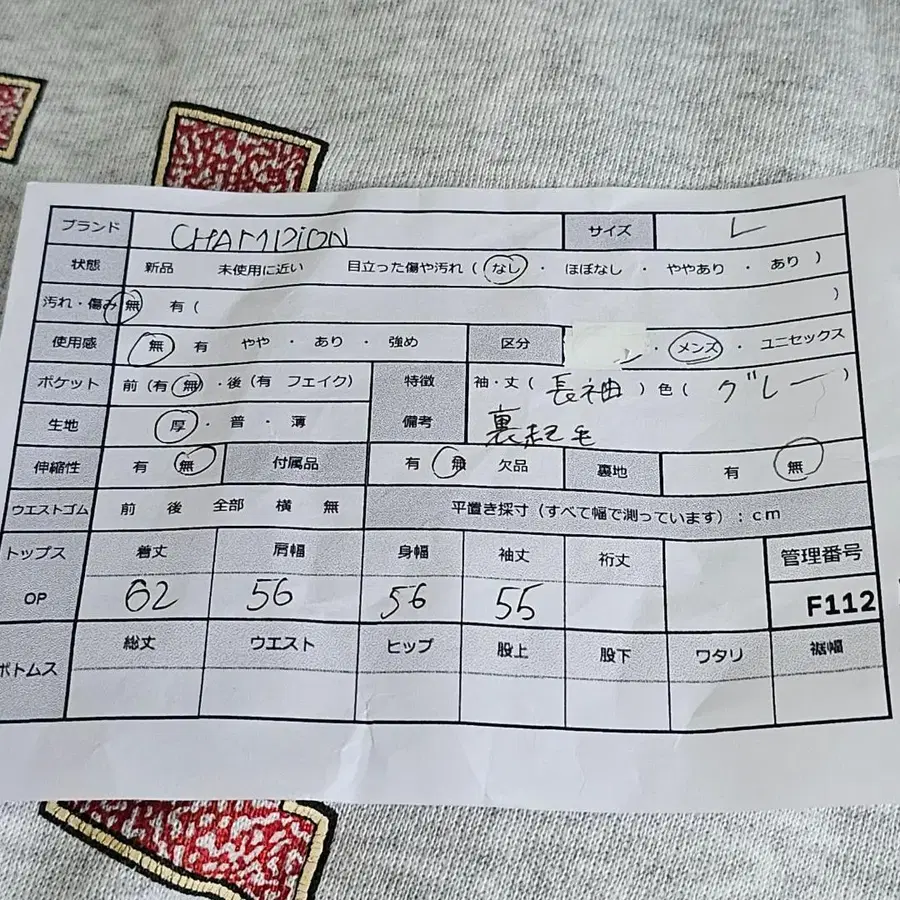 ブランド CHAMPION サイズ L
状態 新品 未使用に近い 目立った傷や汚れ ( なし ・ ほぼなし ・ ややあり ・ あり )
汚れ・傷み 無 有 ( )
使用感 無 有 やや ・ あり ・ 強め 区分 ・ メンズ ・ ユニセックス
ポケット 前 (有 無) ・後 (有 フェイク) 特徴 袖・丈 ( 長袖 ) 色 ( グレー )
生地 厚 ・ 普 ・ 薄 備考 裏起毛
伸縮性 有 無 付属品 有 無 欠品 裏地 有 無
ウエストゴム 前 後 全部 横 無 平置き採寸 (すべて幅で測っています) : cm
トップス 着丈 肩幅 身幅 袖丈 裄丈 管理番号
OP 62 56 56 55 F112
ボトムス 総丈 ウエスト ヒップ 股上 股下 ワタリ 裾幅